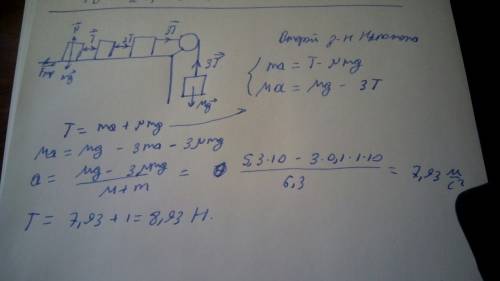 N T 3T П
Fтр mg 3T Mg
Второй з-н Ньютона
ma = T - μmg
Ma = Mg - 3T
T = ma + μmg
Ma = Mg - 3ma - 3μmg
a = Mg - 3μmg / M + m = 5,3·10 - 3·0,1·1·10 / 6,3 = 7,93 м/с²
T = 7,93 + 1 = 8,93 Н.